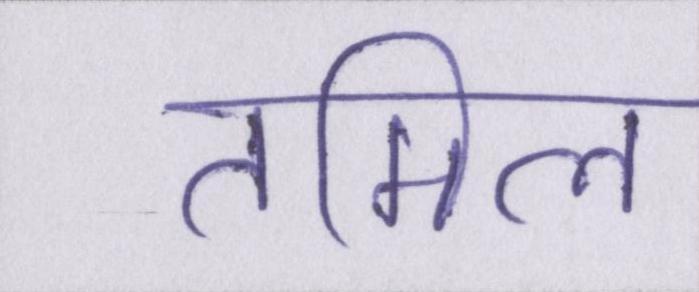 तमिल